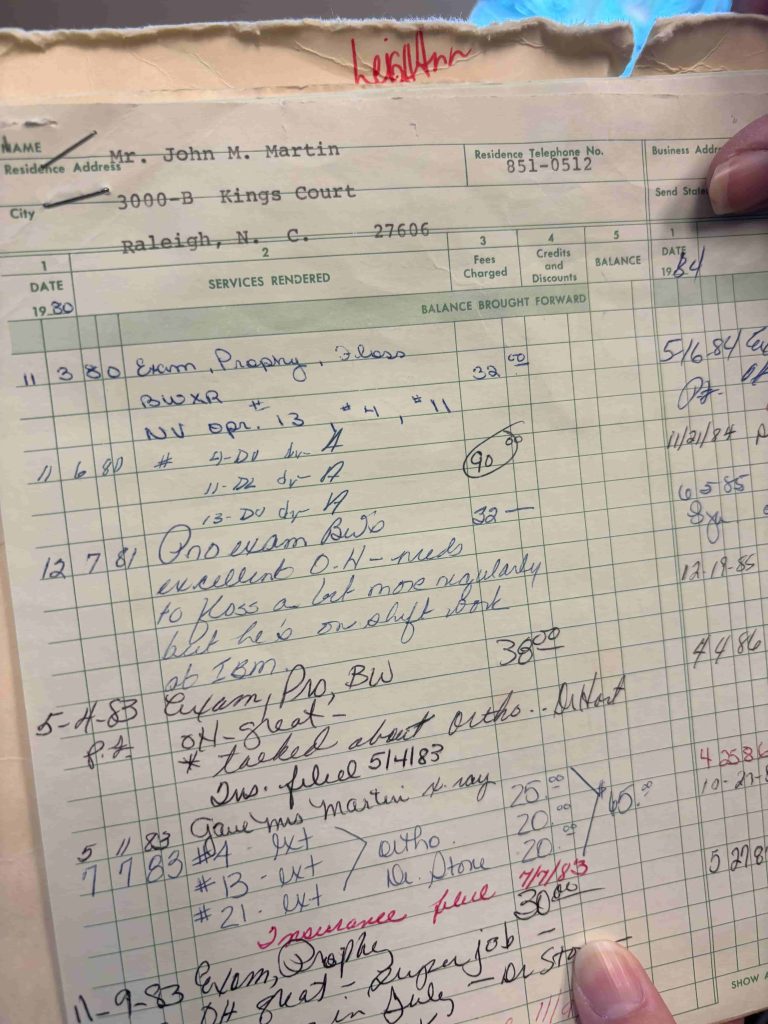 LeighAnn
NAME Mr. John M. Martin
Residence Address
Residence Telephone No.
851-0512
Business Addr
3000-B Kings Court
City
Send State
Raleigh, N. C. 27606
1 2 3 4 5 1
DATE SERVICES RENDERED Fees Charged Credits and Discounts BALANCE DATE
19 80
19 84
BALANCE BROUGHT FORWARD
11 3 80 Exam, Prophy, Floss 32 00
BWXR
NV opr. #13, #4, #11
11 6 80 # 4-DO A 90 00
11-DL A
13-DO A
12 7 81 Pro exam BW's 32 —
excellent O.H - needs
to floss a bit more regularly
but he's on shift work
at IBM.
5-4-83 Exam, Pro, BW 38 00
P.F. OH-great -
* talked about ortho.. Dr Hart
Ins. filed 5/4/83
5 11 83 Gave Mrs Martin x-ray
7 7 83 #4 - ext 25.00
#13 - ext ortho. 20.00 $65.00
#21 - ext Dr. Stone 20.00
Insurance filed 7/7/83
11-9-83 Exam, Prophy 30 00
OH great - super job -
in July - Dr Sto
5/16 84
11/21/84
6 5 85
12-19-85
4 4 86
4 25 86
10-27-8
5 27 8
SHOW A